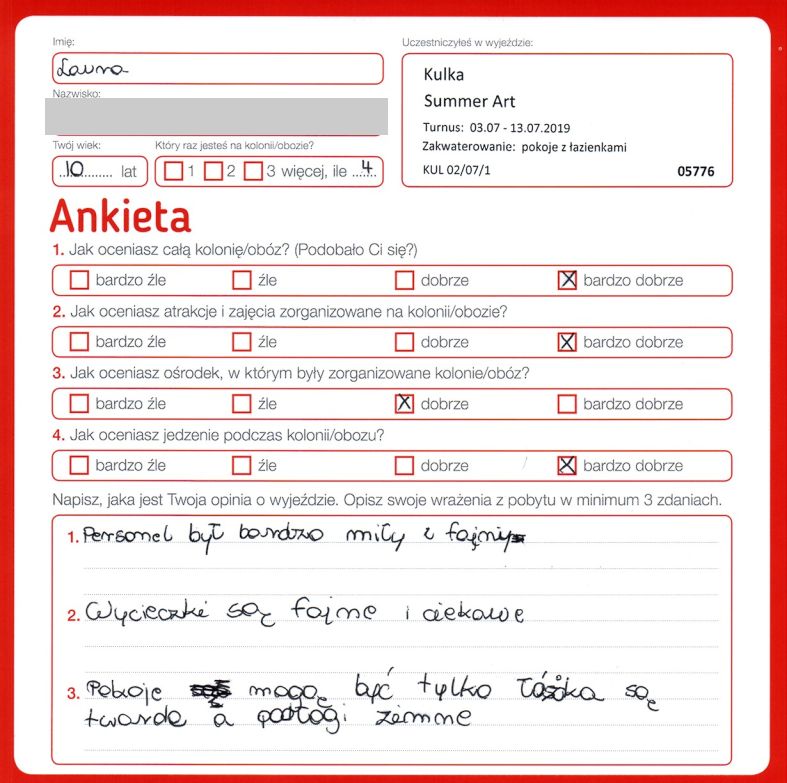 Imię:
Uczestniczyłeś w wyjeździe:
Laura
Kulka
Summer Art
Nazwisko:
Turnus: 03.07 - 13.07.2019
Zakwaterowanie: pokoje z łazienkami
KUL 02/07/1 05776
Twój wiek:
Który raz jesteś na kolonii/obozie?
10 lat
1 2 3 więcej, ile 4
Ankieta
1. Jak oceniasz całą kolonię/obóz? (Podobało Ci się?)
bardzo źle źle dobrze X bardzo dobrze
2. Jak oceniasz atrakcje i zajęcia zorganizowane na kolonii/obozie?
bardzo źle źle dobrze X bardzo dobrze
3. Jak oceniasz ośrodek, w którym były zorganizowane kolonie/obóz?
bardzo źle źle X dobrze bardzo dobrze
4. Jak oceniasz jedzenie podczas kolonii/obozu?
bardzo źle źle dobrze X bardzo dobrze
Napisz, jaka jest Twoja opinia o wyjeździe. Opisz swoje wrażenia z pobytu w minimum 3 zdaniach.
1. Personel był bardzo miły i fajny
2. Wycieczki są fajne i ciekawe
3. Pokoje mogą być tylko są
twarde a podłogi zimne